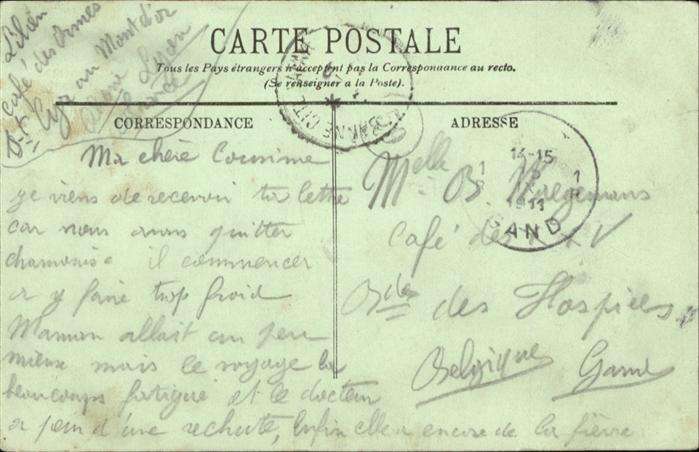 Lilien
café des Ormes
St Cyr au Mont d'or
Lyon
CARTE POSTALE
Tous les Pays étrangers n'acceptent pas la Correspondance au recto.
(Se renseigner a la Poste).
CORRESPONDANCE
Ma chère Cousine
je viens de recevoir ta lettre
car nous avons quitter
chamonise il commencer
a y faire trop froid
Maman allait un peu
mieux mais le voyage la
beaucoup fatigué et le docteur
a peur d'une rechute, enfin elle a encore de la fièvre
ADRESSE
14-15
11
GAND
Melle B. Maegemans
Café des XXV
Bd des Hospices
Belgique Gand